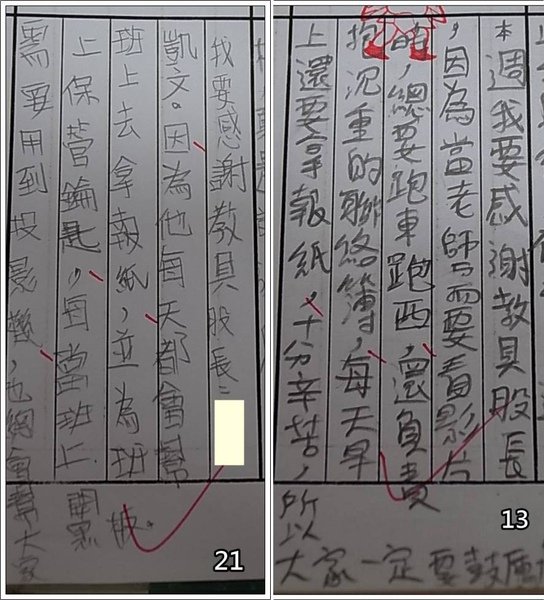 我要感謝教具股長：
凱文。因為他每天都會幫
班上去拿報紙，並為班
上保管鑰匙，每當班上
需要用到投影機，也總會幫大家
21
本週我要感謝教具股長
，因為當老師需要看影片
時，總要跑東跑西，還負責
抱沉重的聯絡簿，每天早
上還要拿報紙，十分辛苦，所以
大家一定要鼓勵
13